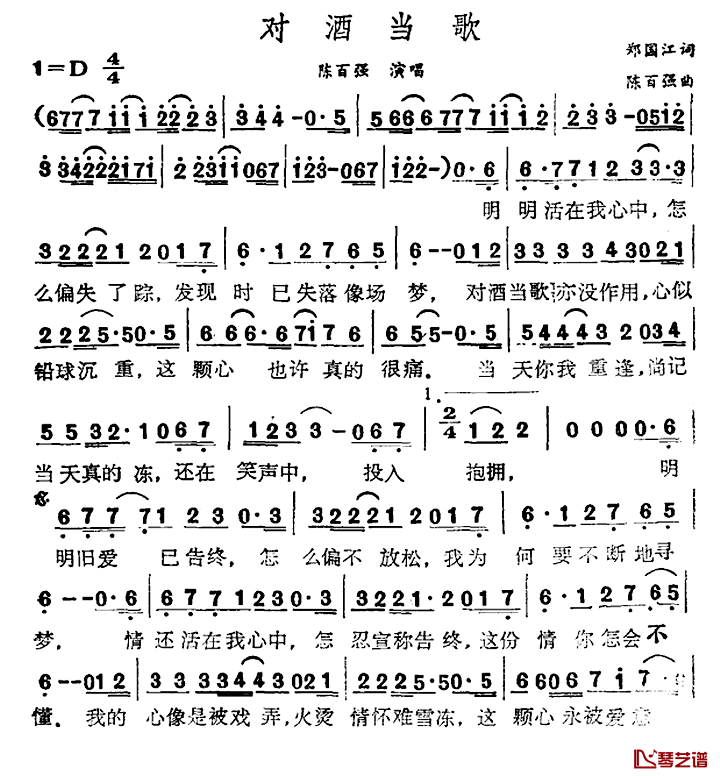 对酒当歌
1=D 4/4 陈百强 演唱 郑国江词
陈百强曲
(6777 1112223 | 344-0·5 | 5666777 1112 | 233-0512
3342222171 | 22311067 | 123-067 | 122-)0·6 | 6·7712 33·3
明 明活在我心中，怎
322212017 | 6·12765 | 6--012 | 333343021
么偏失了踪，发现 时已失落像场 梦， 对酒当歌亦没作用，心似
2225·50·5 | 666·6716 | 655-0·5 | 544432034
铅球沉 重，这 颗心 也许真的 很痛。 当 天你我重逢，尚记
5532·1067 | 1233-067 | 1. 2/4 122 | 0000·6
当天真的冻，还在 笑声中， 投入 抱拥， 明
67771230·3 | 322212017 | 6·12765
明旧爱 已告终，怎 么偏不放松，我为 何要不断地寻
6--0·6 | 6771230·3 | 3221·2017 | 6·12765
梦， 情 还活在我心中，怎 忍宣称告终，这份 情你怎会不
6--012 | 333443021 | 2225·50·5 | 6606717
懂。 我的 心像是被戏弄，火烫 情怀难雪冻，这 颗心永被爱意
琴艺谱